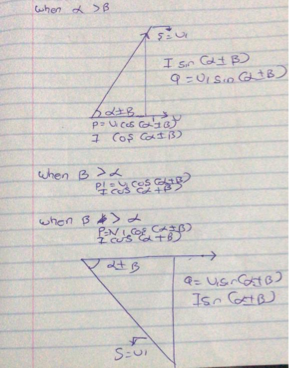 when α > β
S = VI
I sin (α±β)
Q = VI sin (α±β)
α±β
P = VI cos (α±β)
I cos (α±β)
when β > α
P = VI cos (α±β)
I cos (α±β)
when β > α
P = VI cos (α±β)
I cos (α±β)
α±β
Q = VI sin (α±β)
I sin (α±β)
S = VI